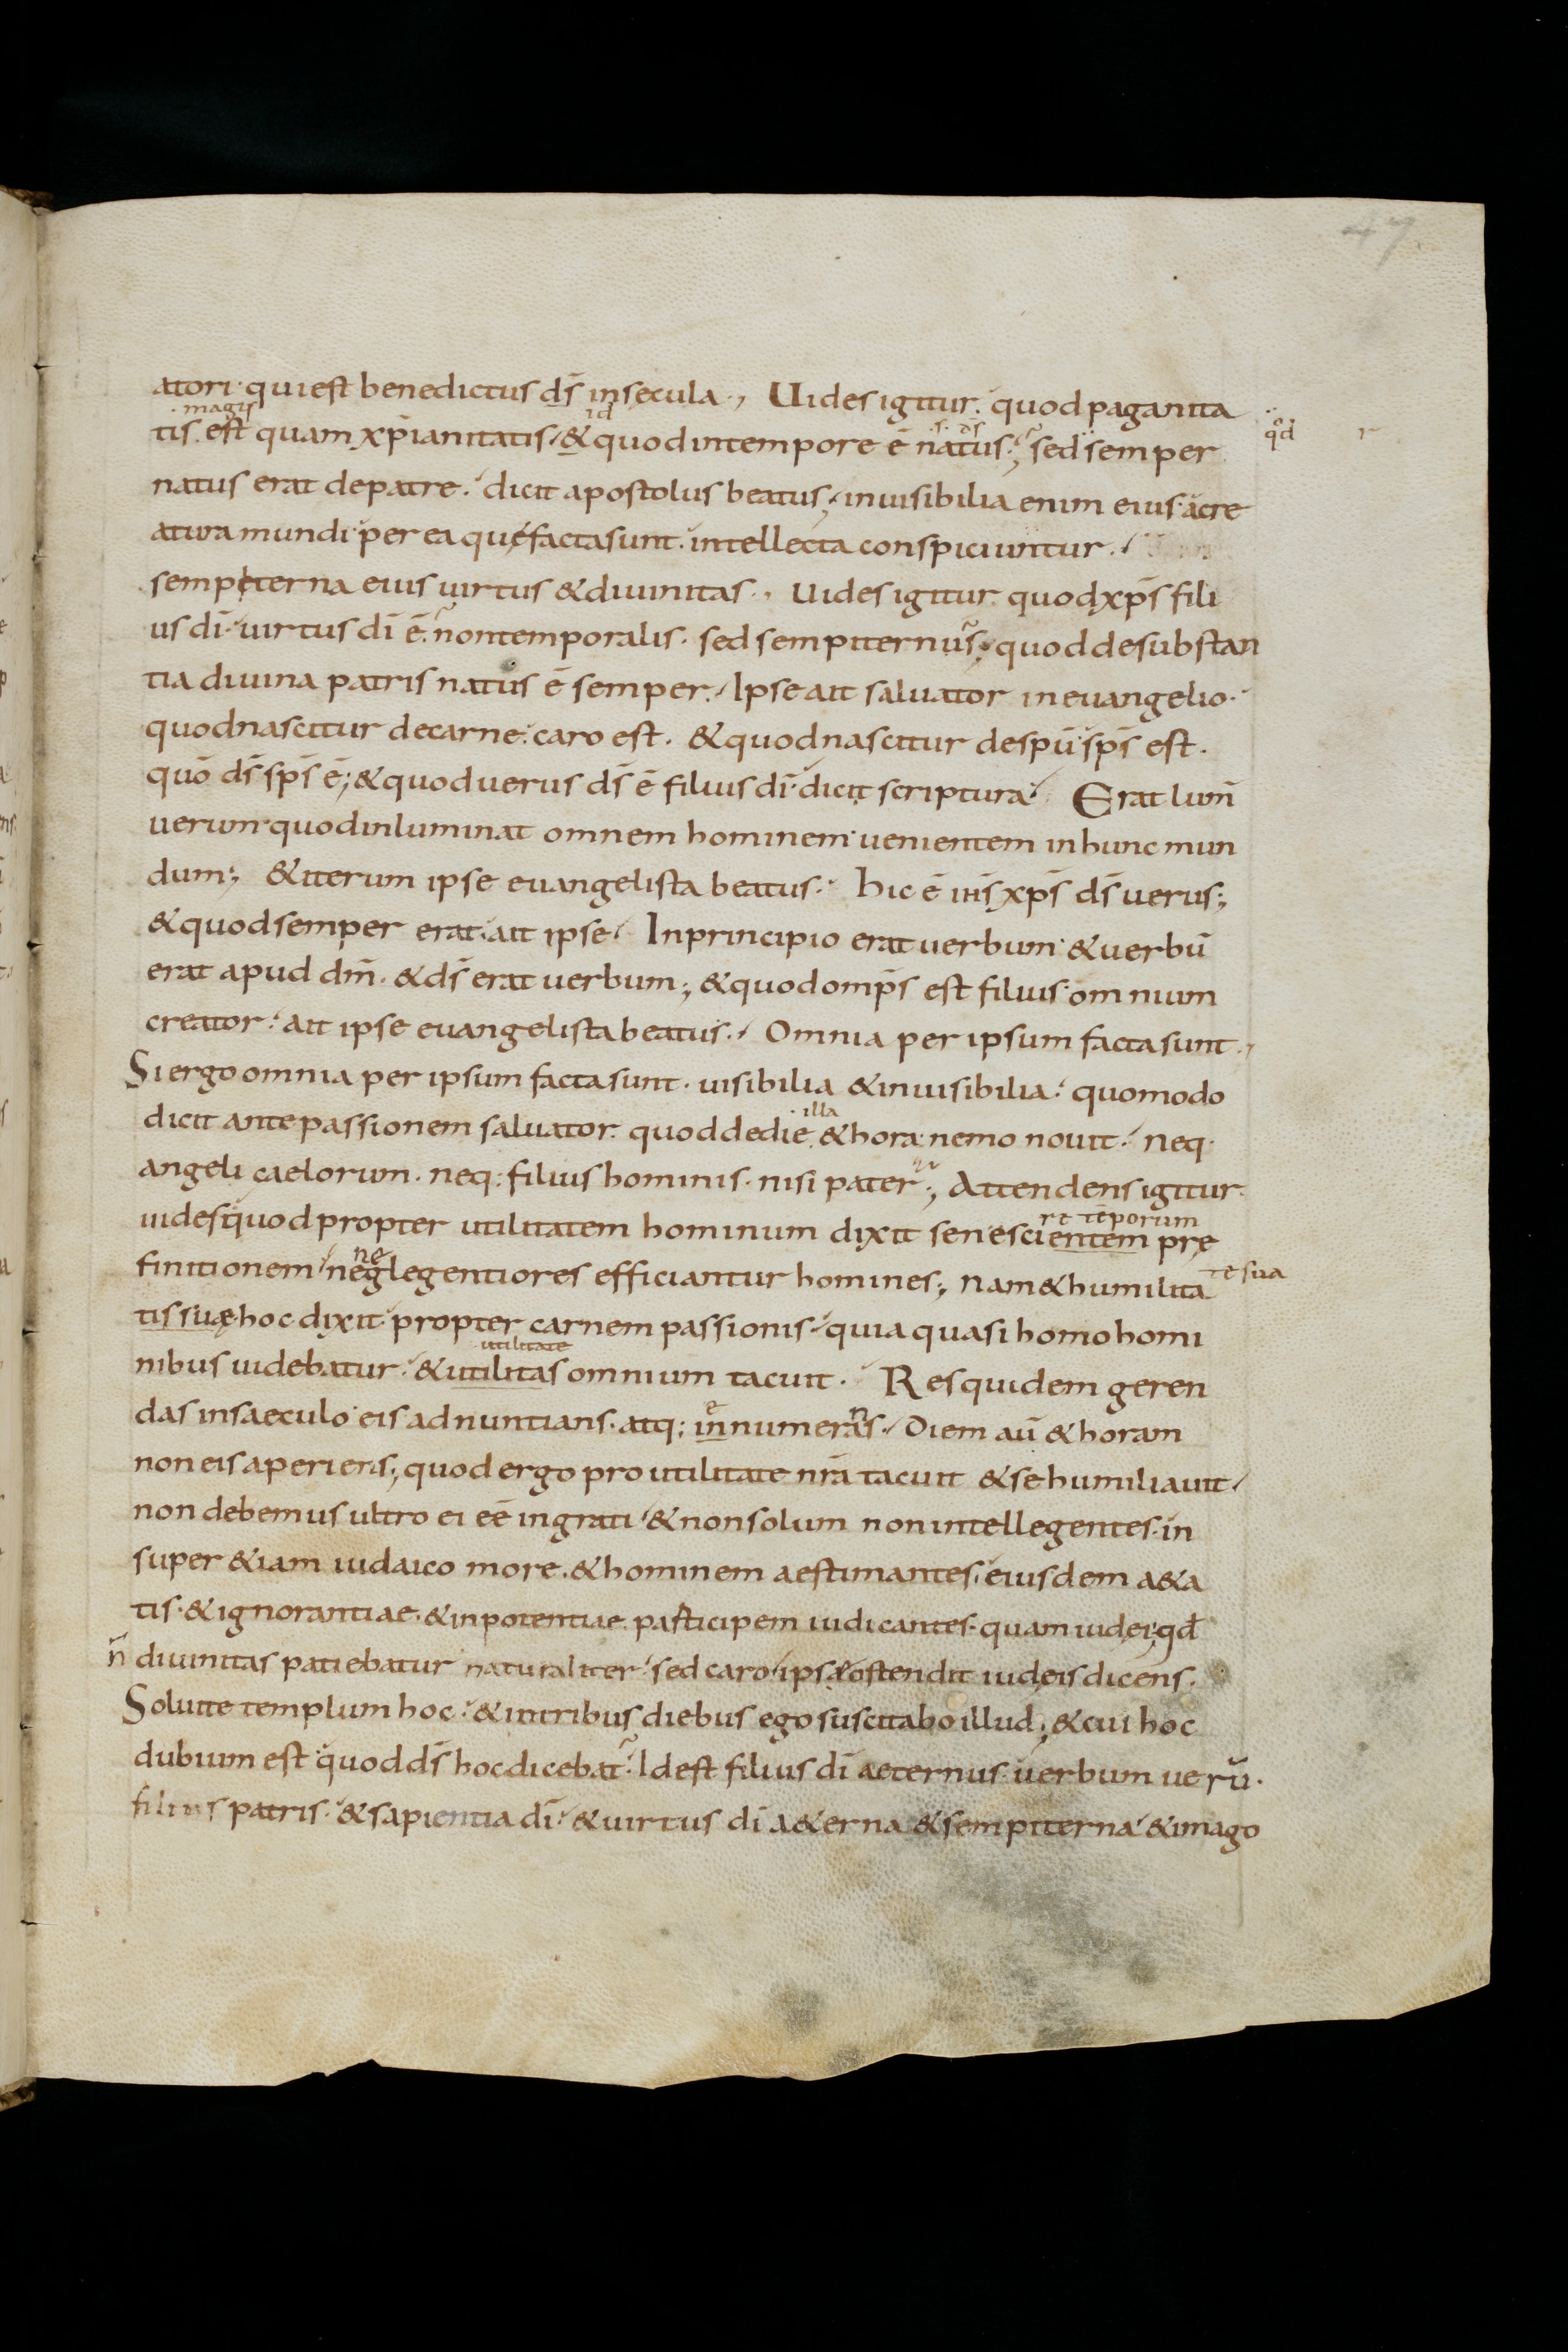 47
atori· qui est benedictus ds̄ in secula., Uides igitur. quod paganita
·magis id ·s· ds̄
tis est quam xp̄ianitatis·/ & quod in tempore ē natus·; sed semper
q̄d r
natus erat de patre·/ dicit apostolus beatus;/ inuisibilia enim eius· a cre
atura mundi· per ea quę facta sunt· intellecta conspiciuntur·/
sempeterna eius uirtus & diuinitas·, Uides igitur· quod xp̄s fili
us dī· uirtus dī ē· non temporalis· sed sempiternus;/ quod de substan
tia diuina patris natus ē semper·/ Ipse ait saluator in euangelio·/
quod nascitur de carne· caro est· & quod nascitur de spū· sp̄s est·
quō ds̄ sp̄s ē; & quod uerus ds̄ ē filius dī· dicit scriptura·/ Erat lum̄
uerum· quod inluminat omnem hominem· uenientem in hunc mun
dum; & iterum ipse euangelista beatus·/ hic ē ih̄s xp̄s ds̄ uerus;
& quod semper erat· ait ipse·/ In principio erat uerbum· & uerbū
erat apud dm̄· & ds̄ erat uerbum; & quod omp̄s est filius· omnium
creator·/ ait ipse euangelista beatus·/ Omnia per ipsum facta sunt·,
Si ergo omnia per ipsum facta sunt· uisibilia & inuisibilia·/ quomodo
·illa
dicit ante passionem saluator· quod de die & hora· nemo nouit·/ neq·
angeli caelorum· neq: filius hominis· nisi pater·; Attendens igitur·
re tēporum
uides quod propter utilitatem hominum dixit se nescientem pre
ne te sua
finitionem·/ neglegentiores efficiantur homines; Nam & humilita
tis suę hoc dixit· propter carnem passionis·/ quia quasi homo homi
·utilitate
nibus uidebatur·/ & utilitas omnium tacuit· Res quidem geren
e n
das in saeculo· eis adnuntians· atq; innumeras·/ Diem aū & horam
non eis aperiens; quod ergo pro utilitate nr̄a tacuit & se humiliauit·/
non debemus ultro ei eē ingrati·/ & non solum non intellegentes· in
super & iam iudaico more· & hominem aestimantes· eiusdem a&a
tis· & ignorantiae· & inpotentiae· participem iudicantes· quam iudei· qd̄
n̄ diuinitas patiebatur naturaliter·/ sed caro· ipse ostendit iudeis dicens·
Soluite templum hoc·/ & in tribus diebus ego suscitabo illud; & cui hoc
dubium est quod ds̄ hoc dicebat· Id est filius dī aeternus uerbum uerū·
filius patris·/ & sapientia dī·/ & uirtus dī a&erna & sempiterna·/ & imago